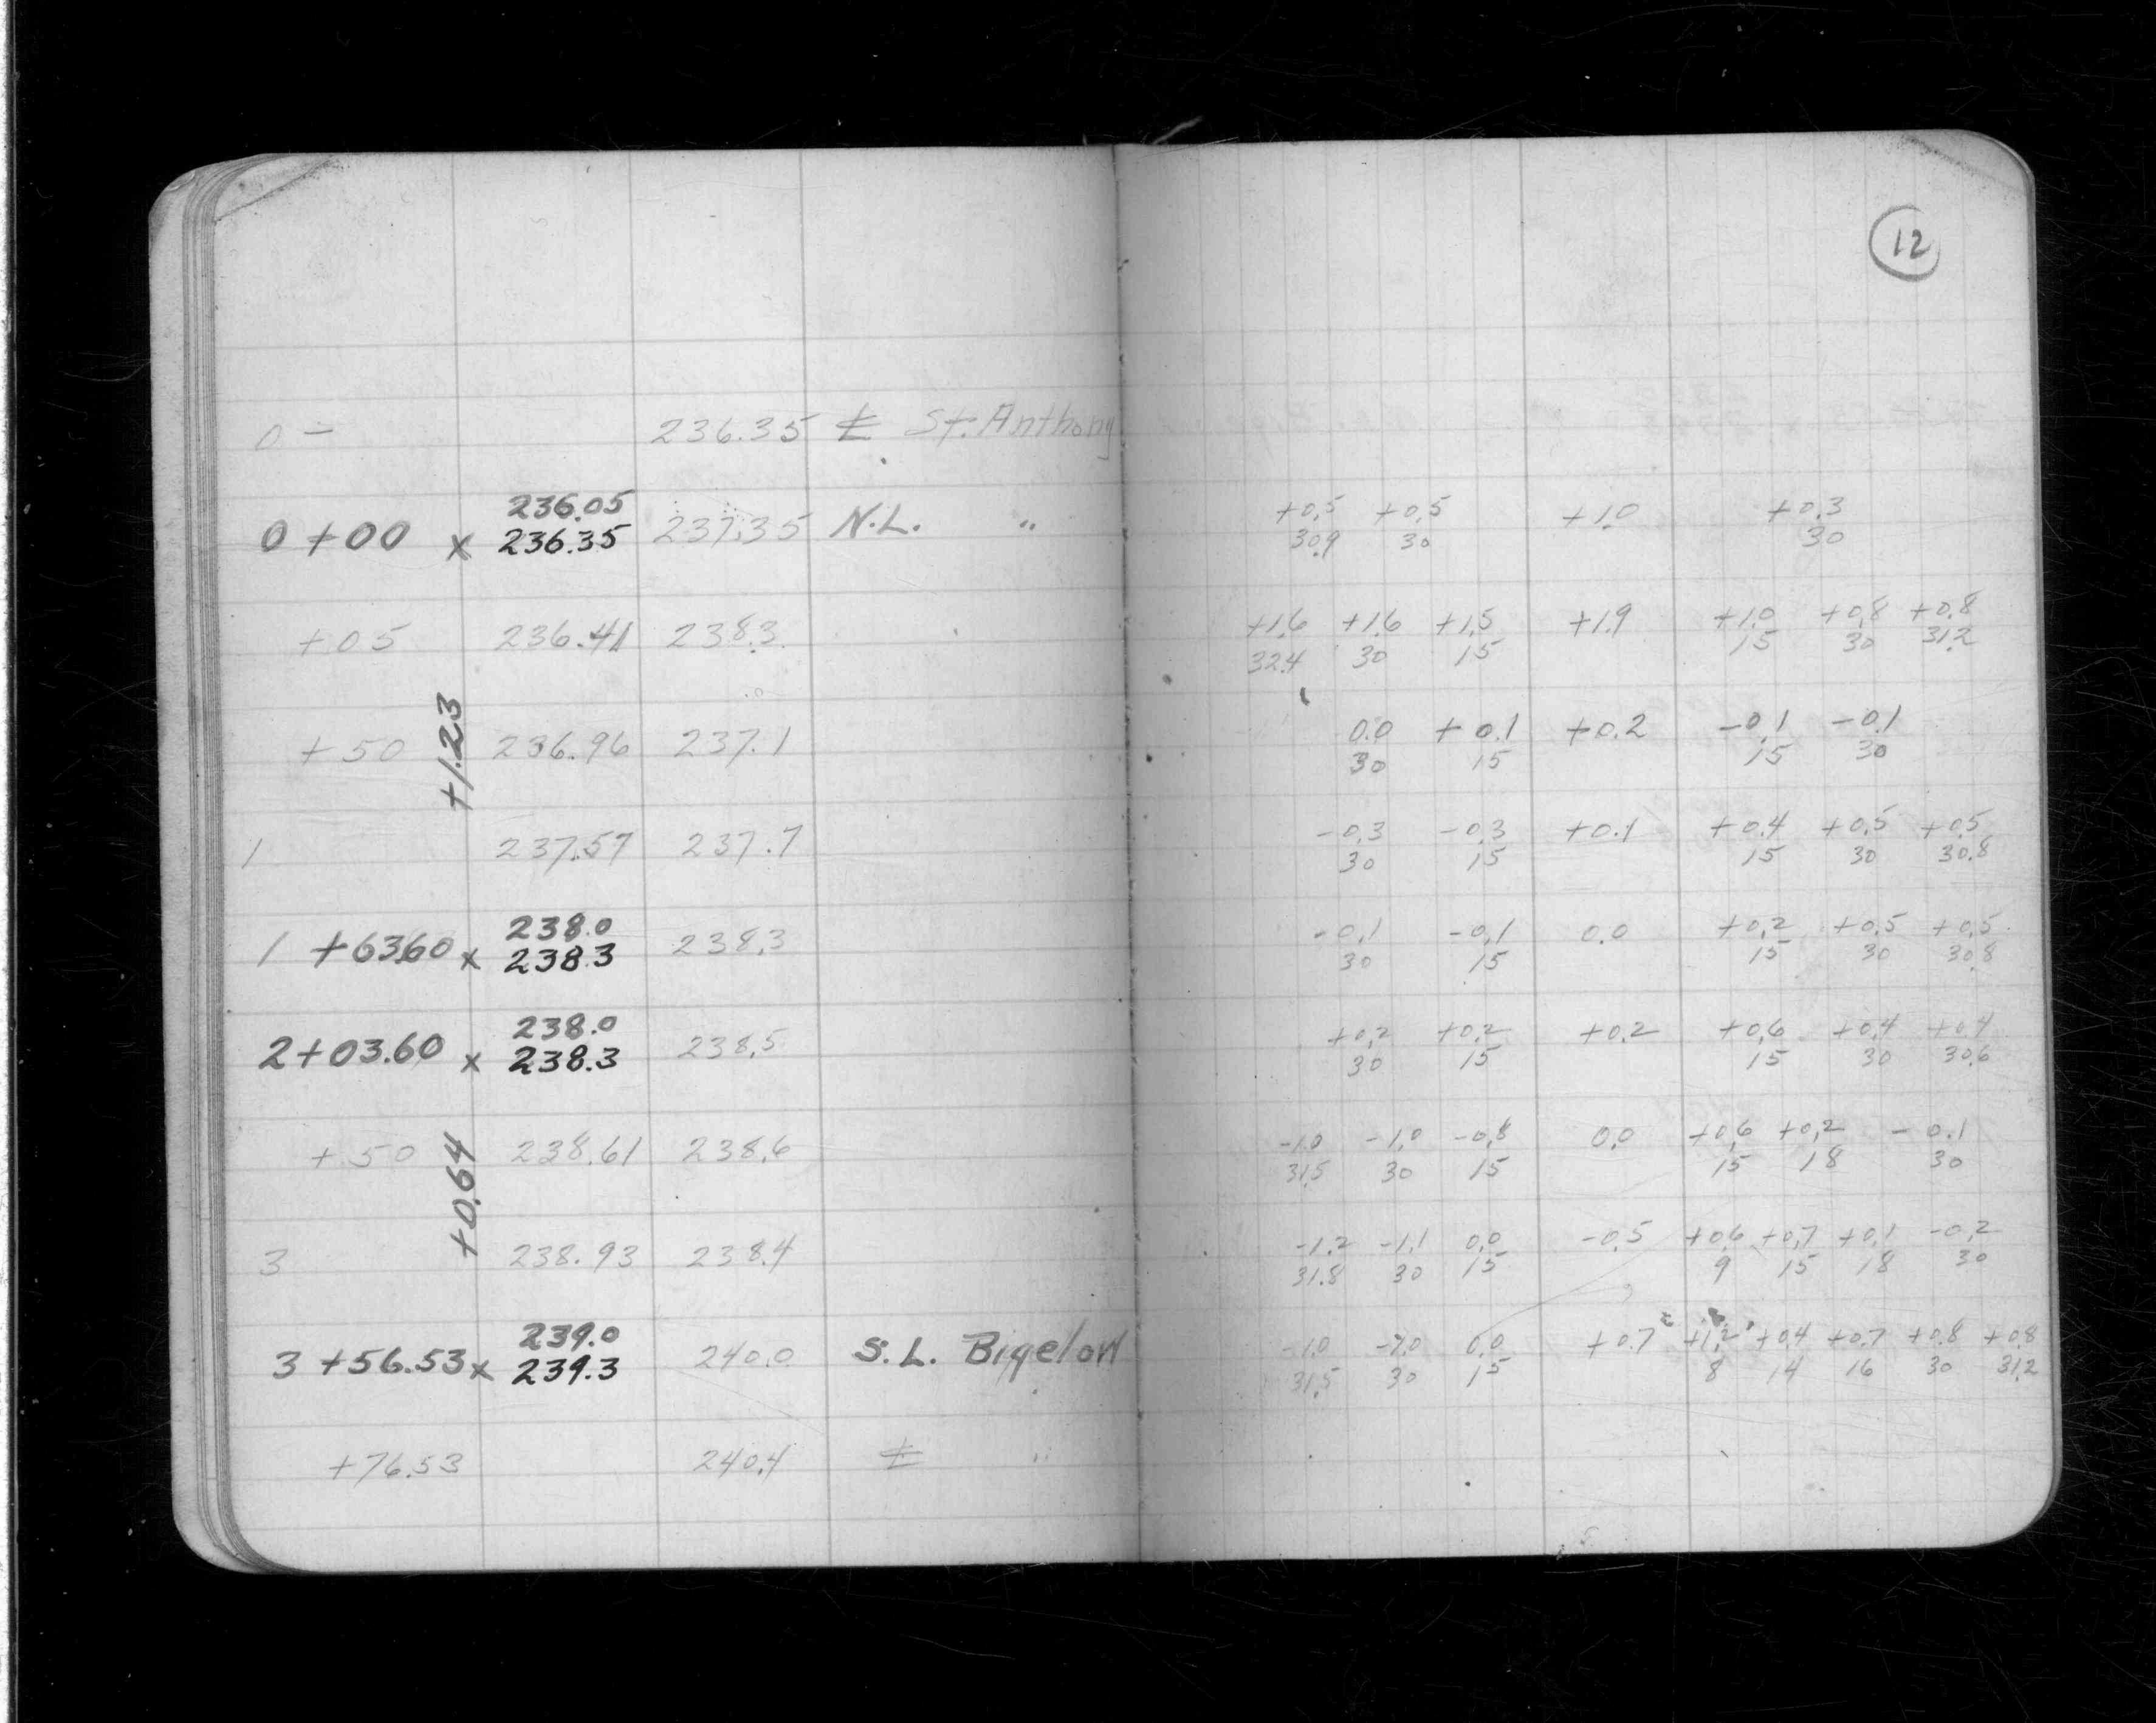 12
0 - 236.35 ⅊ St. Anthony
236.05
0+00 x 236.35 237.35 N.L. " +0.5 +0.5 +1.0 +0.3
30.9 30 30
+05 236.41 238.3 +1.6 +1.6 +1.5 +1.9 +1.0 +0.8 +0.8
32.4 30 15 15 30 31.2
+1.23
+50 236.96 237.1 0.0 +0.1 +0.2 -0.1 -0.1
30 15 15 30
1 237.57 237.7 -0.3 -0.3 +0.1 +0.4 +0.5 +0.5
30 15 15 30 30.8
238.0
1 +63.60 x 238.3 238.3 -0.1 -0.1 0.0 +0.2 +0.5 +0.5
30 15 15 30 30.8
238.0
2+03.60 x 238.3 238.5 +0.2 +0.2 +0.2 +0.6 +0.4 +0.4
30 15 15 30 30.6
+50 238.61 238.6 -1.0 -1.0 -0.8 0.0 +0.6 +0.2 -0.1
31.5 30 15 15 18 30
+0.64
3 238.93 238.4 -1.2 -1.1 0.0 -0.5 +0.6 +0.7 +0.1 -0.2
31.8 30 15 9 15 18 30
239.0
3 +56.53 x 239.3 240.0 S.L. Bigelow -1.0 -1.0 0.0 +0.7 +1.2 +0.4 +0.7 +0.8 +0.8
31.5 30 15 8 14 16 30 31.2
+76.53 240.4 ⅊ "